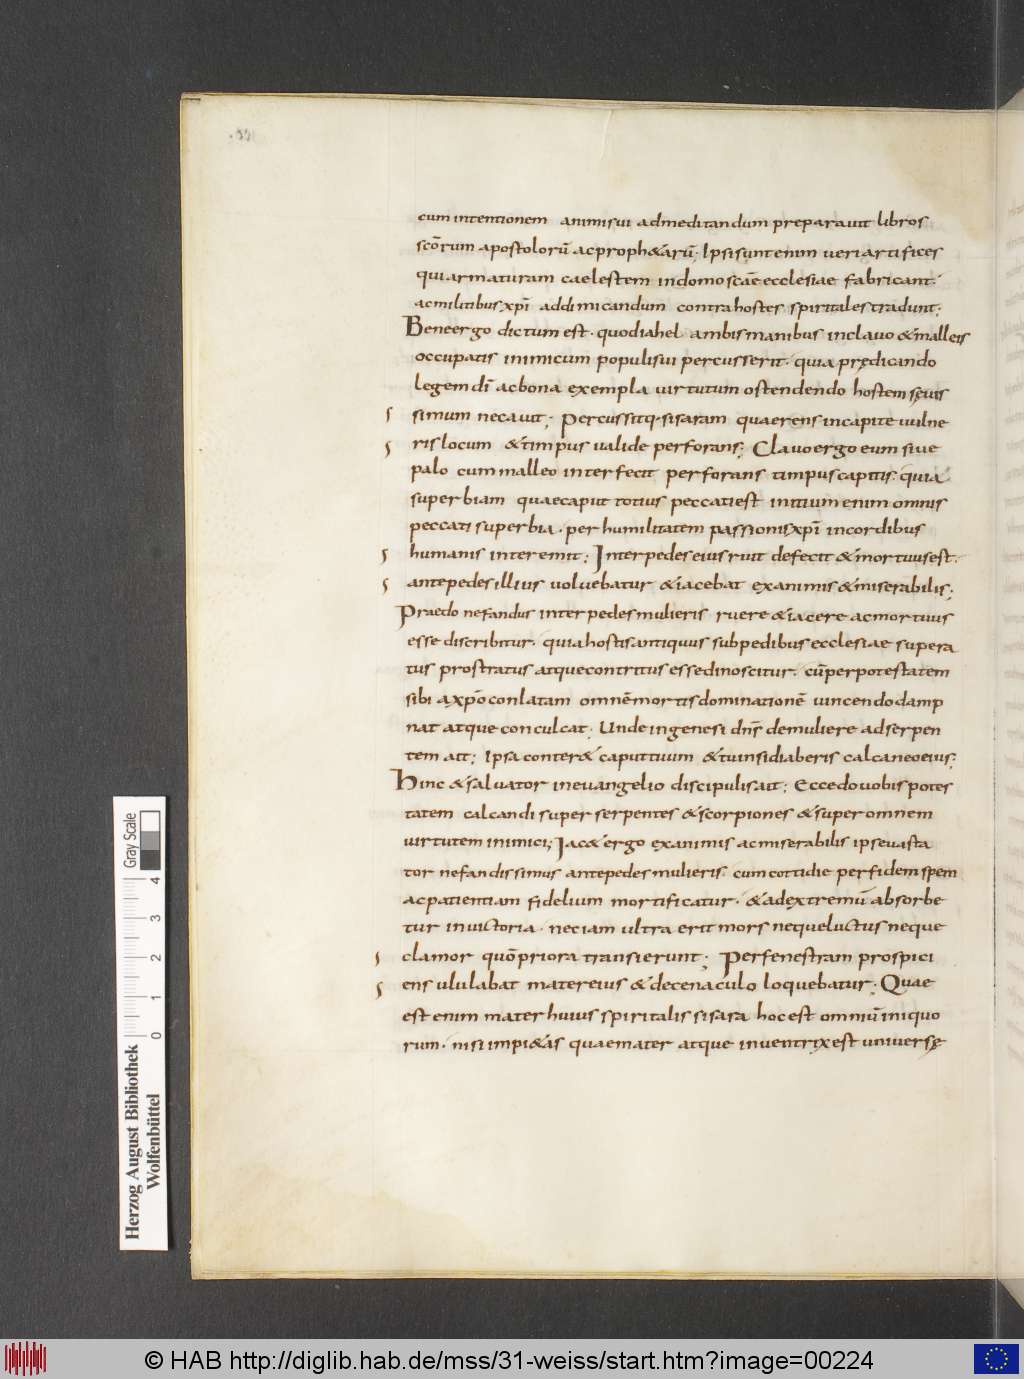 cum intentionem animi sui ad meditandum preparavit libros
scōrum apostolorū ac proph&arū; Ipsi sunt enim veri artifices
qui armaturam caelestem in domo scāe ecclesiae fabricant.
ac militibus xp̄i ad dimicandum contra hostes spiritales tradunt;
Bene ergo dictum est. quod iahel ambis manibus in clavo & malleis
occupatis inimicum populi sui percusserit. quia prędicando
legem dī ac bona exempla virtutum ostendendo hostem sęvis
simum necavit; Percussitq; sisaram quaerens in capite vulne
ris locum & timpus valide perforans; Clavo ergo eum sive
palo cum malleo interfecit perforans timpus capitis. quia
superbiam quae caput totius peccati est initium enim omnis
peccati superbia. per humilitatem passionis xp̄i in cordibus
humanis interemit; Inter pedes eius ruit defecit & mortuus est.
ante pedes illius volvebatur & iacebat exanimis & miserabilis;
Praedo nefandus inter pedes mulieris ruere & iacere ac mortuus
esse discribitur. quia hostis antiquus sub pedibus ecclesiae supera
tus prostratus atque contritus esse dinoscitur. cū per potestatem
sibi a xp̄o conlatam omnē mortis dominationē vincendo damp
nat atque conculcat. Unde in genesi dn̄s de muliere ad serpen
tem ait; Ipsa conter& caput tuum & tu insidiaberis calcaneo eius;
Hinc & salvator in evangelio discipulis ait; Ecce do vobis potes
tatem calcandi super serpentes & scorpiones & super omnem
virtutem inimici; Iac& ergo exanimis ac miserabilis ipse vasta
tor nefandissimus ante pedes mulieris. cum cottidie per fidem spem
ac patientiam fidelium mortificatur. & ad extremū absorbe
tur in victoria. nec iam ultra erit mors neque luctus neque
clamor quō priora transierunt; Per fenestram prospici
ens ululabat mater eius & de cenaculo loquebatur. Quae
est enim mater huius spiritalis sisara hoc est omniū iniquo
rum. nisi impi&as quae mater atque inventrix est universę
Gray Scale
4
3
2
1
0
Herzog August Bibliothek
Wolfenbüttel
© HAB http://diglib.hab.de/mss/31-weiss/start.htm?image=00224